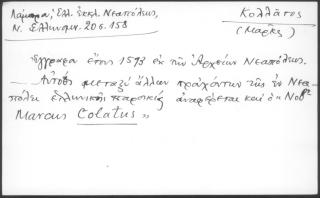 Λάμπρου, Ἑλλ. Ἐκκλ. Νεαπόλεως,
Ν. Ἑλληνομν. 20 σ. 158
Κολλάτος
(Μάρκος)
Ἔγγραφα ἔτους 1593 ἐκ τῶν Ἀρχείων Νεαπόλεως.
— Αὐτόθι μεταξὺ ἄλλων προὐχόντων τῆς ἐν Νεα-
πόλει ἑλληνικῆς παροικίας ἀναφέρεται καὶ ὁ « Νοβ
Marcus Colatus »